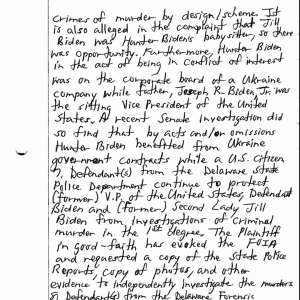 crimes of murder by design/scheme. It
is also alleged in the complaint that Jill
Biden was Hunter Biden's babysitter, so there
was opportunity. Furthermore, Hunter Biden
in the act of being in conflict of interest
was on the corporate board of a Ukraine
company while father, Joseph R. Biden, Jr. was
the sitting Vice President of the United
States. A recent Senate investigation did
so find that by acts and/or omissions
Hunter Biden benefitted from Ukraine
government contracts while a U.S. citizen
7. Defendant(s) from the Delaware State
Police Department continue to protect
(former) V.P. of the United States, Defendant
Biden and (former) Second Lady, Jill
Biden from investigations of criminal
murder in the 1st degree. The Plaintiff
in good-faith has evoked the FOIA
and requested a copy of the State Police
Reports, copy of photos, and other
evidence to independently investigate the murders
8. Defendant(s) from the Delaware Forensic